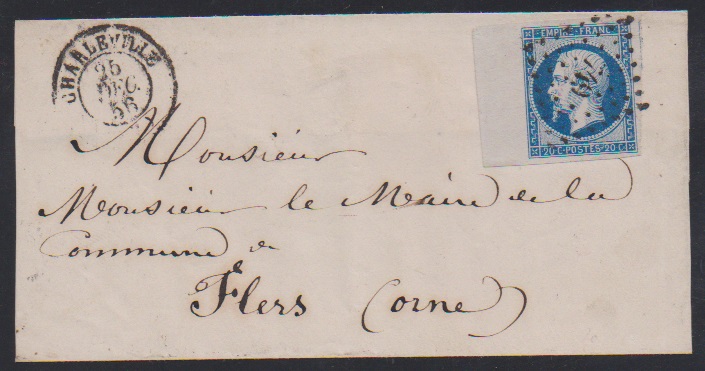 CHARLEVILLE
25
DEC.
56
EMPIRE FRANC
20 C. POSTES 20 C.
Monsieur
Monsieur le Maire de la
Commune de
Flers (Orne)